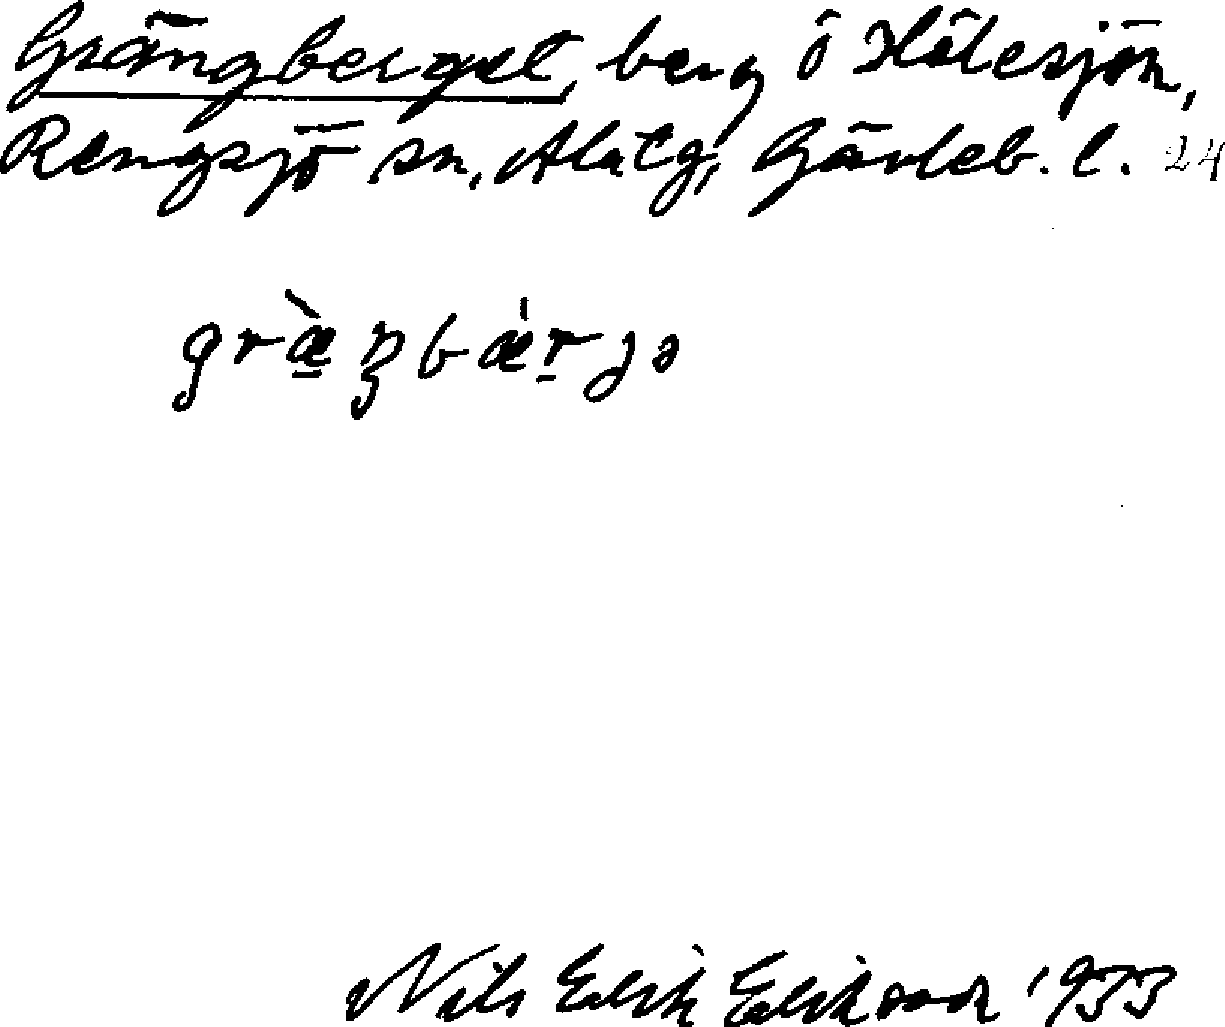 Grängberget, berg ö Hålesjön,
Rengsjö sn, Alatg, Gävleb. l. 24
græ̀ŋbǽrjə
Nils Erik Eriksson 1933